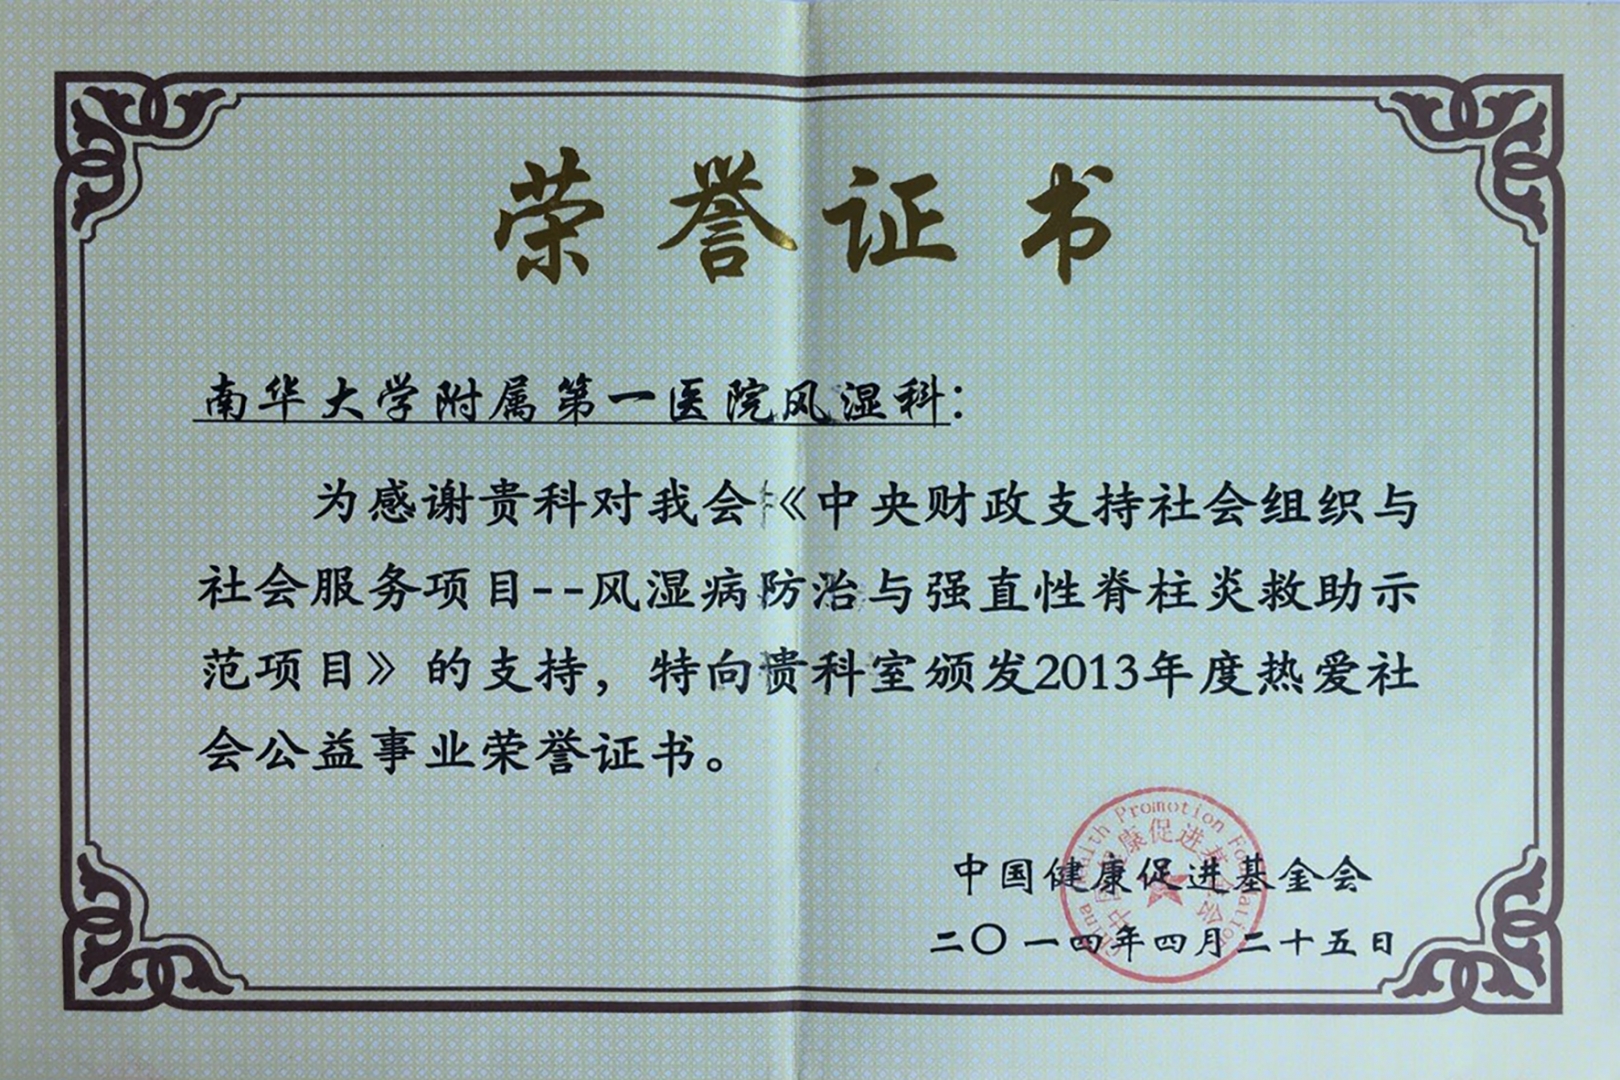 荣誉证书
南华大学附属第一医院风湿科：
为感谢贵科对我会《中央财政支持社会组织与
社会服务项目--风湿病防治与强直性脊柱炎救助示
范项目》的支持，特向贵科室颁发2013年度热爱社
会公益事业荣誉证书。
中国健康促进基金会
二〇一四年四月二十五日
China Health Promotion Foundation
中国健康促进基金会